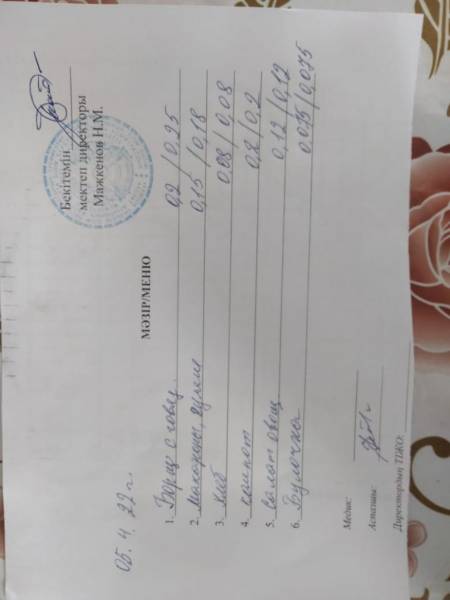 Бекітемін
мектеп директоры
Мажкенов Н.М.
МӘЗІР/МЕНЮ
05. 4. 22 г.
1. Борщ с говяд. 0,2 / 0,25
2. макароны, гуляш 0,15 / 0,18
3. хлеб 0,08 / 0,08
4. компот 0,2 / 0,2
5. салат овощ 0,12 / 0,12
6. Булочка 0,075 / 0,075
Медик:
Аспазшы:
Директордың ТІЖО: